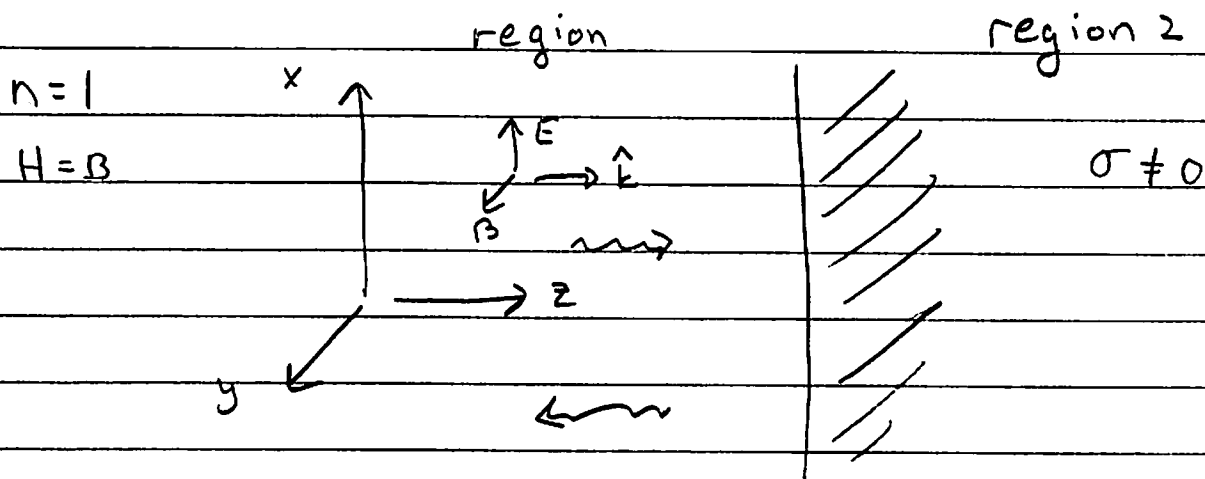 region region 2
n = 1
x
E
H = B
k̂
σ ≠ 0
B
z
y